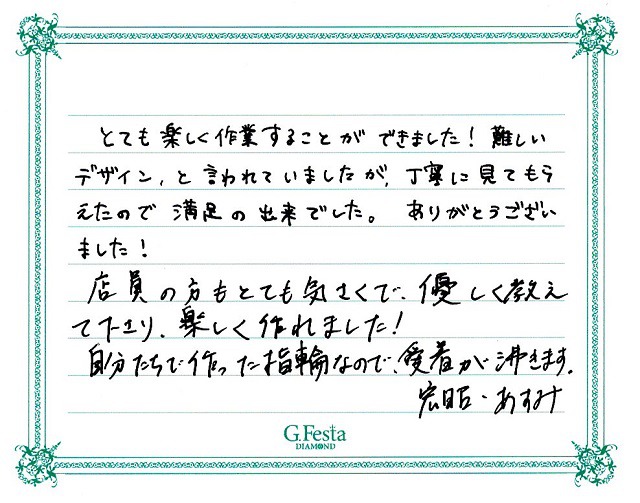 とても楽しく作業することができました！難しい
デザイン、と言われていましたが、丁寧に見てもら
えたので満足の出来でした。 ありがとうござい
ました！
店員の方もとても気さくで、優しく教え
て下さり、楽しく作れました！
自分たちで作った指輪なので、愛着が沸きます。
宏昭・あすみ
G.Festa
DIAMOND